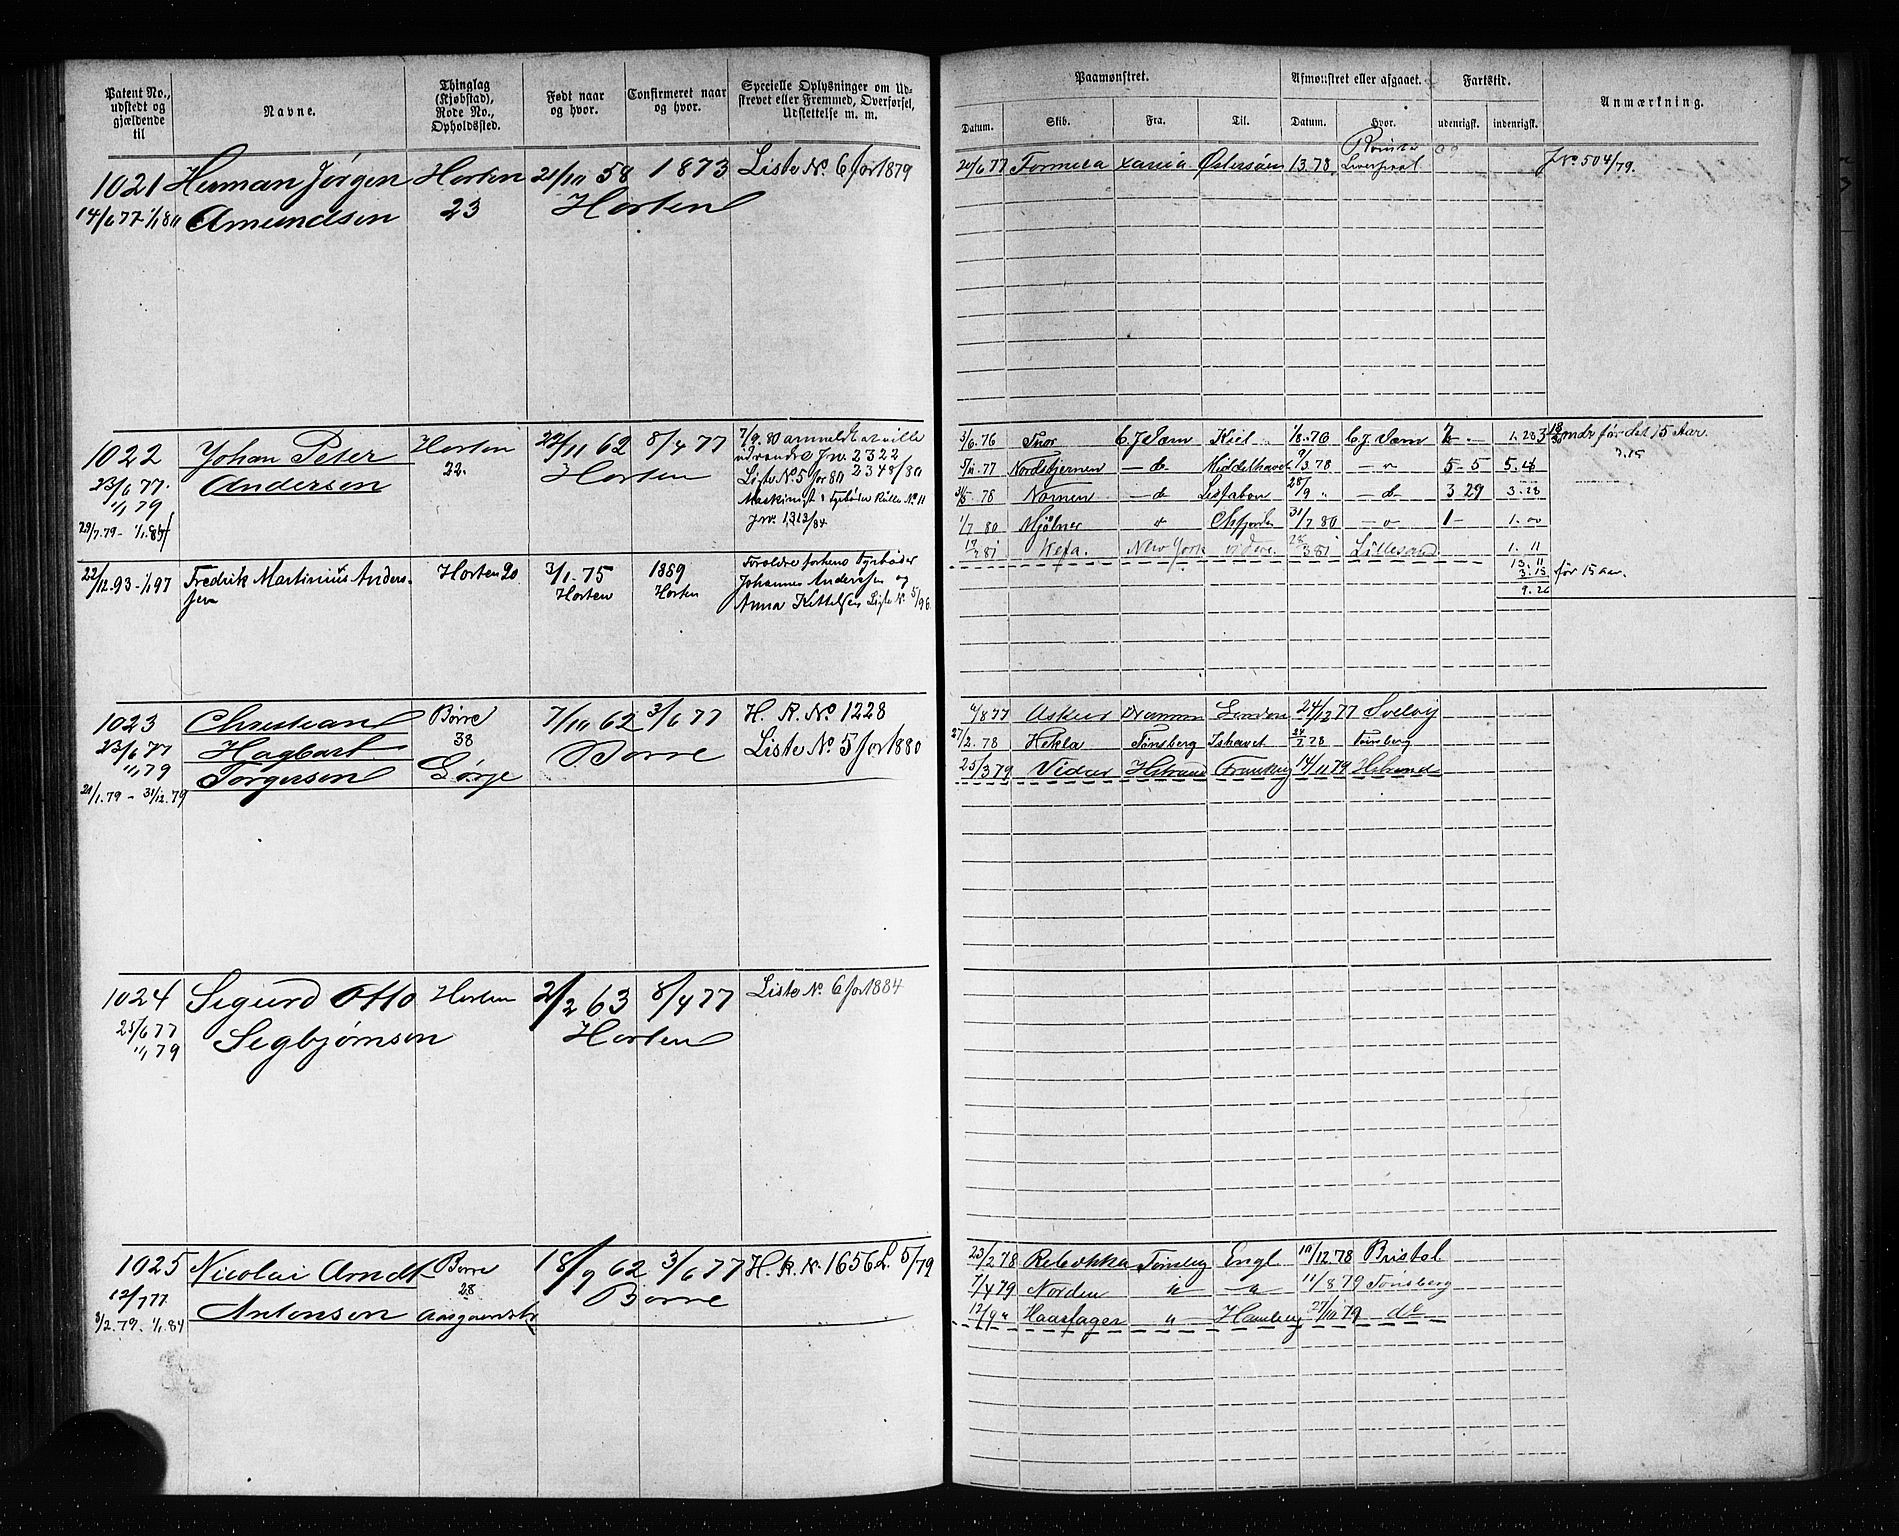 Patent No., udstedt og gjældende til
Navne.
Thinglag (Kjøbstad), Rode No., Opholdssted.
Født naar og hvor.
Confirmeret naar og hvor.
Specielle Oplysninger om Udskrevet eller Fremmed, Overførsel, Udslettelse m. m.
Paamønstret.
Afmønstret eller afgaaet.
Fartstid.
Anmærkning.
Datum. Skib. Fra. Til. Datum. Hvor. udenrigsk. indenrigsk.
1021 Herman Jørgen Horten 21/11 58 1873 Liste No 6 for 1879
14/6 77 - 1/1 80 Amundsen 23 Horten
20/6 77 Formica Xania Østersøen 13.78 Liverpool J No 504/79.
1022 Johan Peter Horten 22/11 62 8/4 77 7/9.80 anmeldt at ville
23/6 77. Andersen 22. Horten udvandre J No 2322
1/1 79 Liste No 5 for 80 2348/80
29/7.79 - 1/1.85 Maskinist & Fyrbøder Rulle No 11
J No. 1312/84
3/6.76 Thor C. J. Værn Kiel 1/8.76 C. J. Værn 2 - 1.28 mdr før det 15 Aar.
5/11.77 Nordstjernen - do Middelhavet 9/3.78 - " 5-5 5.
3/5.78 Nornen - do Lissabon 28/9 " - do 3 29 3.28
1/7 80 Mjølner " Chfjorden 31/7 80 - " 1 - 1.00
17/2 81 Vega. New York 28/3 81 Lillesand 1. 11
13. 11
3.15 før 15 aar.
9.26
22/12.93 - 1/1 97 Fredrik Martinius Anders- Horten 20 3/1.75 1889 Forældre forhens Fyrbøder
sen Horten Horten Johannes Anderssen og
Anna Kettelsen Liste No 5/96.
1023 Christian Borre 7/10 62 3/6 77 H. R. No 1228
23/6 77 Hagbart 38 Borre Liste No 5 for 1880
1/1 79 Torgersen Gørge
21/1.79 - 31/12.79
6/8 77 Askur Drammen London 24/12 77 Svelvig
27/2.78 Hekla Tønsberg Ishavet 7.78 Tønsberg
25/3 79 Vidar Hstrand 14/11 79 Hstrand
1024 Sigurd Otto Horten 2/2 63 8/4 77 Liste No. 6 for 1884
25/6 77 Segbjørnsen Horten
1/1 79
1025 Nicolai Arndt Borre 18/9 62 3/6 77 H. R. No. 1656 L. 5/79
12/7 77 28 Borre
3/2.79 - 1/1.84 Antonsen Aasgaardstr
23/2 78 Rebekka Tønsberg Engl 10/12.78 Bristol
7/4 79 Norden " " 11/8 79 Tønsberg
12/9 " Haasfager " Hamburg 27/10 79 do